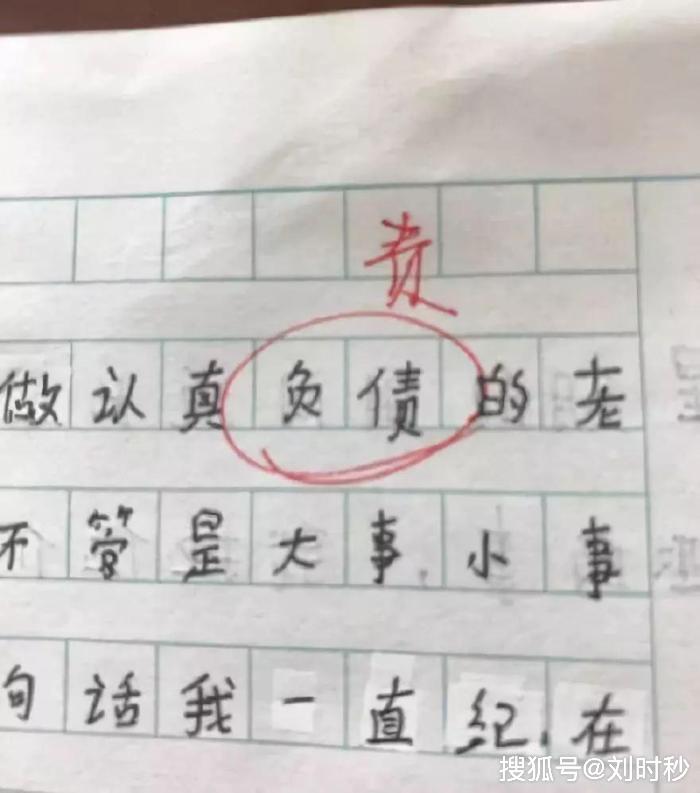 责
做认真负债的老
不管是大事小事
句话我一直纪在
搜狐号@刘时秒